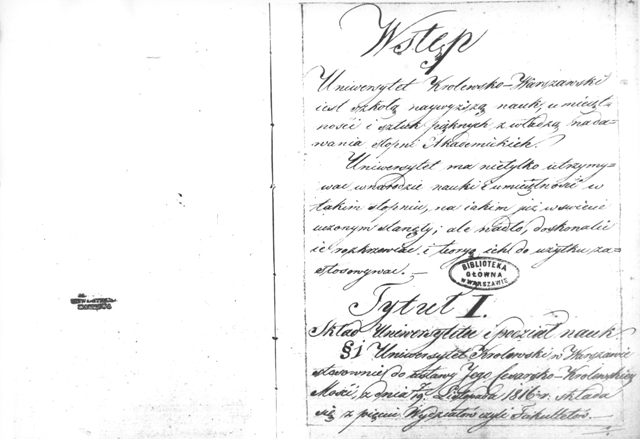 Wstęp
Uniwersytet Krolewsko-Warszawski
iest szkołą naywyższą nauk, umieięt-
ności i sztuk pięknych z władzą nada-
wania stopni Akademickich.
Uniwersytet ma nietylko utrzymy-
wać w narodzie nauki i umieiętność w
takim stopniu, na iakim iuż w świecie
uczonym stanęły; ale nadto, doskonalić
ie rozkrzewiać i teoryą ich do użytku za-
stosowywać. —
BIBLIOTEKA
GŁÓWNA
W WARSZAWIE
Tytuł I.
Skład Uniwersytetu i podział nauk
§ 1 Uniwersytet Krolewski w Warszawie
stosownie do ustawy Jego Cesarsko-Krolewskiey
Mości z dnia Listopada 1816 r. składa
się z pięciu Wydziałow czyli Fakultetow. —